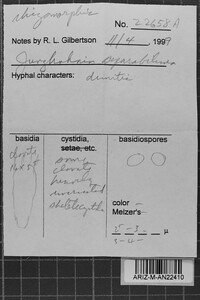 rhizomorphic
No. 22658A
Notes by R. L. Gilbertson 11/4, 1999
Junghuhnia separabilima
Hyphal characters: dimitic
basidia
cystidia,
setae, etc.
basidiospores
clavate
some
clavate
heavily
incrusted
skeletocystidia
color -
Melzer's -
μ
ARIZ-M-AN22410